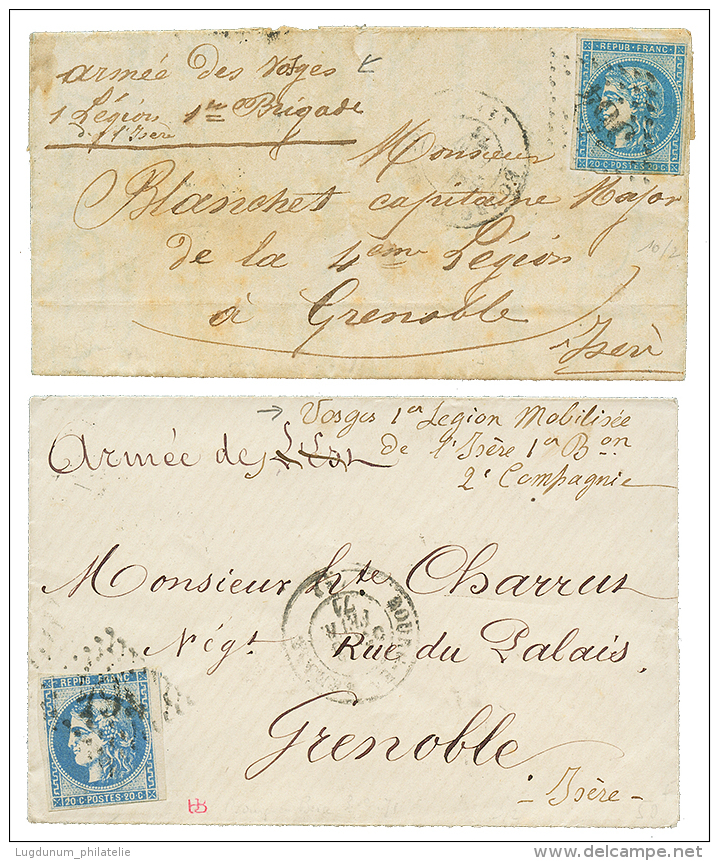 armée des Vosges
1 Légion 1re Brigade
de l'Isère
REPUB FRANC
20 C POSTES 20 C
Monsieur
Blanchet capitaine Major
de la 4eme Légion
à Grenoble
Isère
10/2
→ Vosges 1er Legion Mobilisée
Armée des de l'Isère 1er Bon
2e Compagnie
Monsieur hte Charrut
Négt Rue du Palais,
Grenoble
- Isère -
71
REPUB FRANC
20 C POSTES 20 C
Lugdunum_philatelie
www.delcampe.net